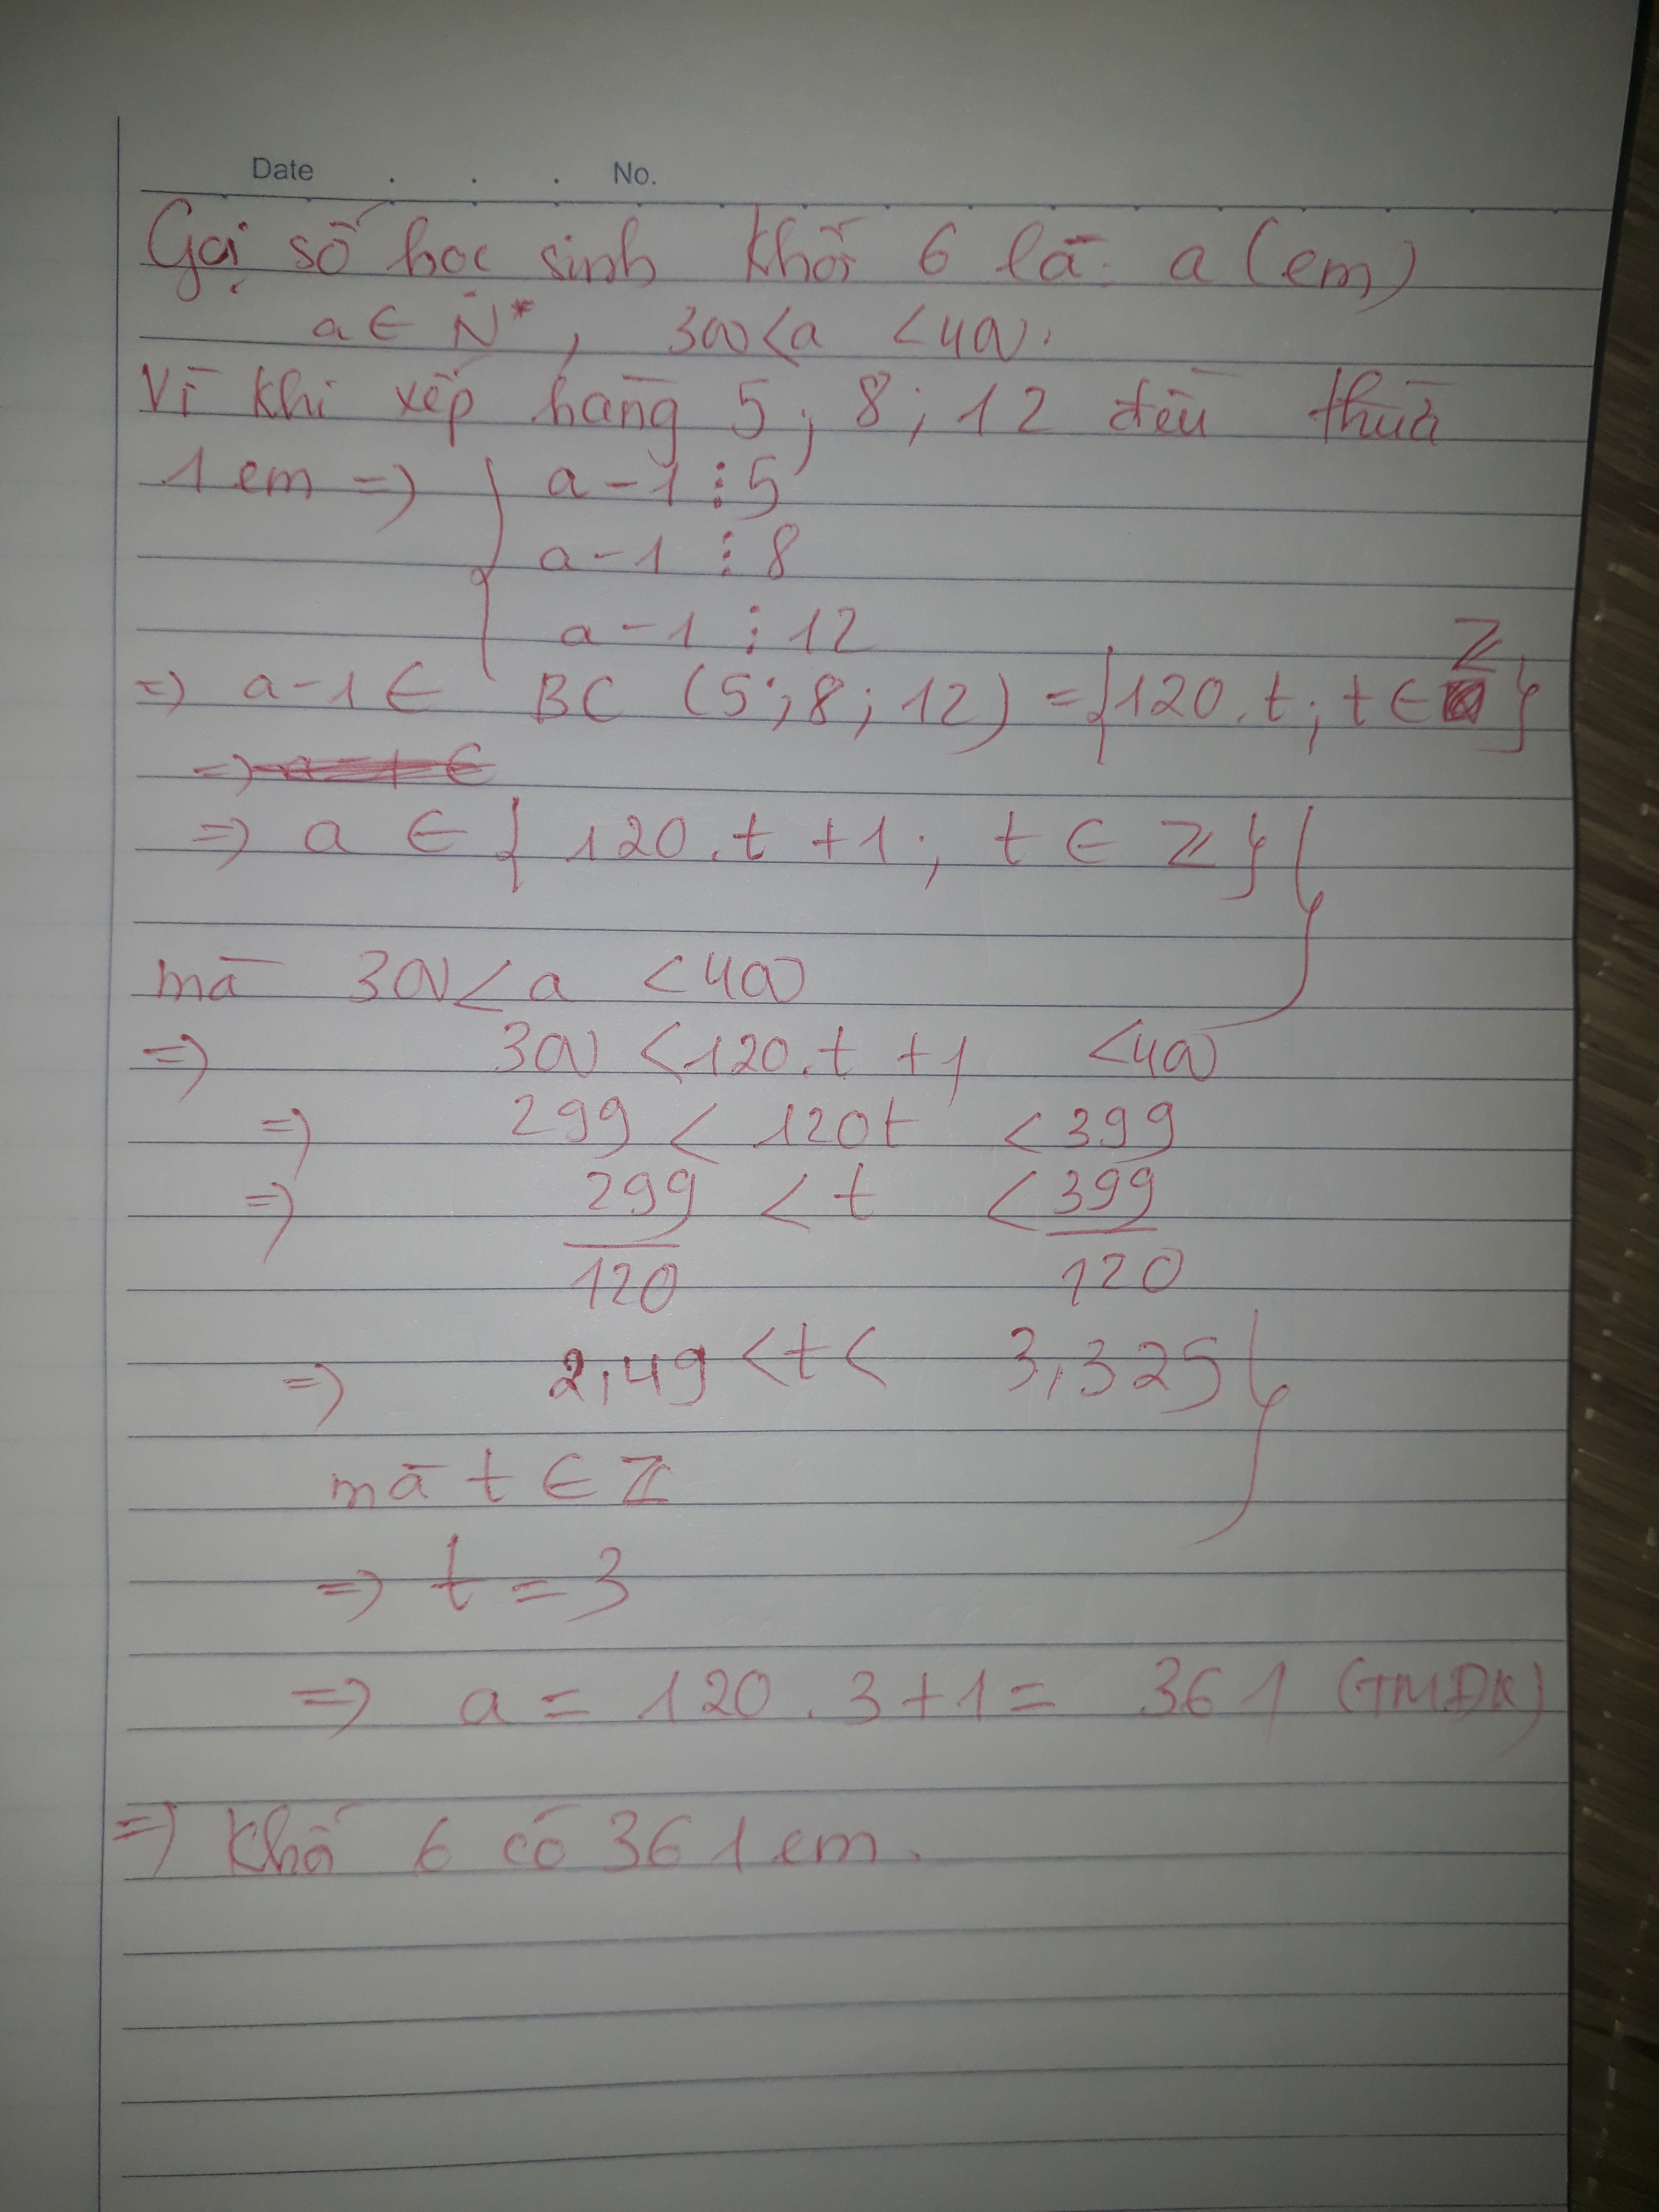 Date . . . No.
Gọi số học sinh khối 6 là: a (em)
a ∈ N*, 300 < a < 400.
Vì khi xếp hàng 5; 8; 12 đều thừa
1 em => { a - 1 ⋮ 5
a - 1 ⋮ 8
a - 1 ⋮ 12
=> a - 1 ∈ BC (5; 8; 12) = {120.t; t ∈ Z}
=> a ∈ {120.t + 1; t ∈ Z} }
mà 300 < a < 400
=> 300 < 120.t + 1 < 400
=> 299 < 120t < 399
=> 299/120 < t < 399/120
=> 2,49 < t < 3,325 }
mà t ∈ Z
=> t = 3
=> a = 120 . 3 + 1 = 361 (TMĐK)
=> Khố 6 có 361 em.